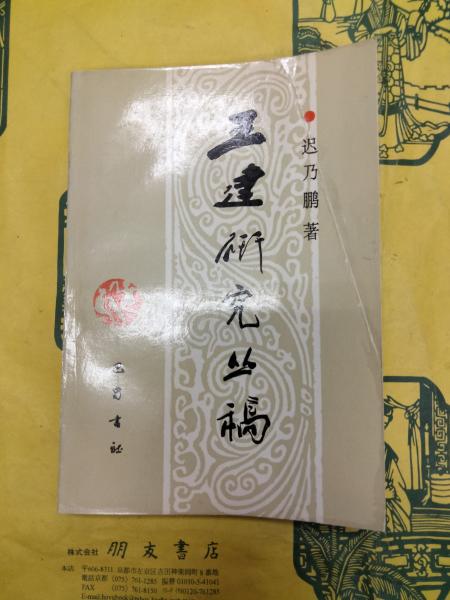 王建研究丛稿
迟乃鹏 著
巴蜀书社
株式会社 朋友書店
本店 〒606-8311 京都市左京区吉田神楽岡町8番地
電話京都 (075) 761-1285 振替 01010-5-41041
FAX (075) 761-8150